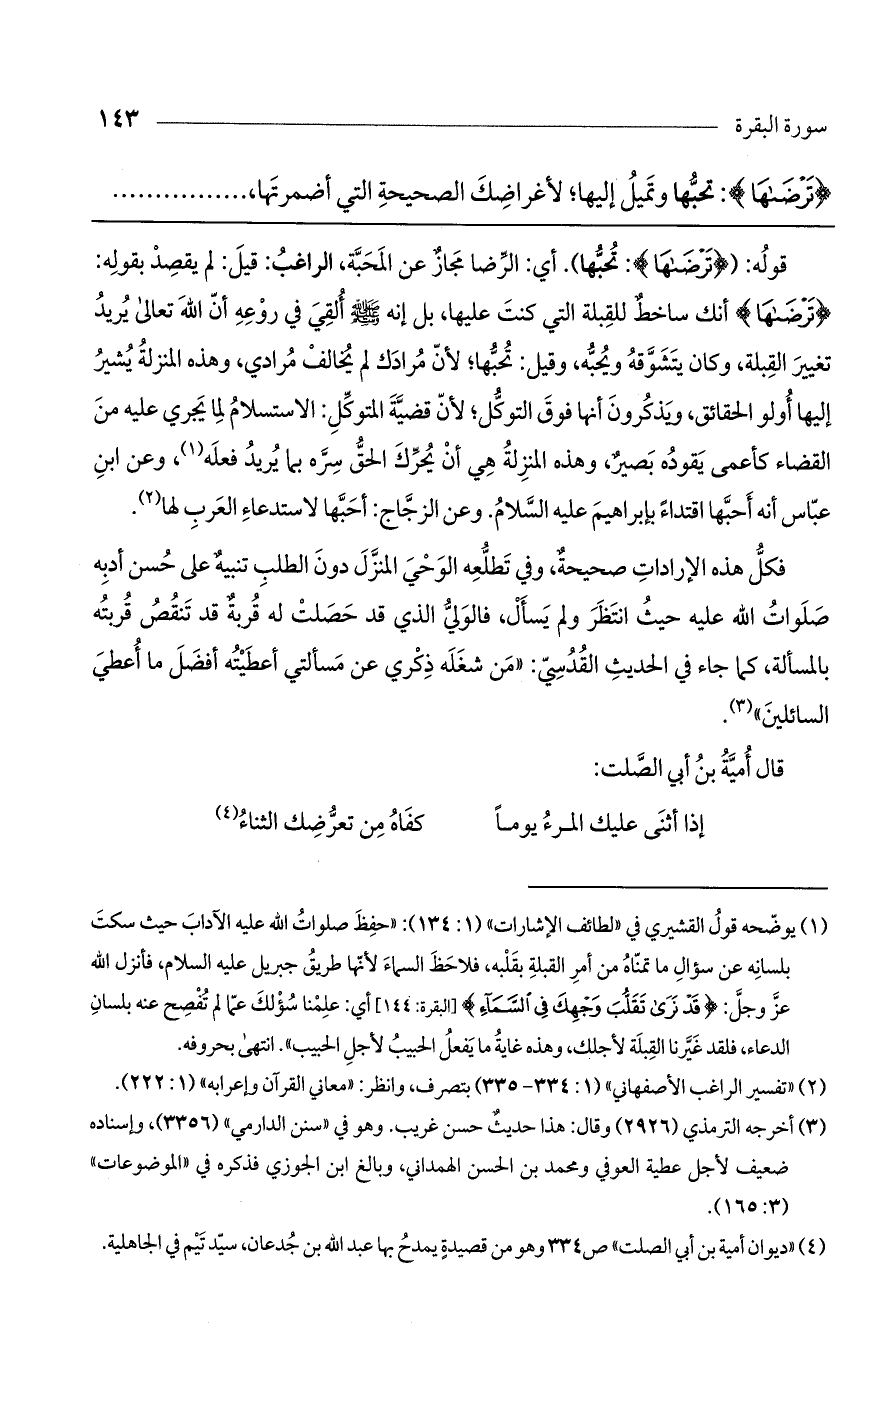 سورة البقرة ١٤٣
﴿تَرْضَىٰهَا﴾: تحبُّها وتَميلُ إليها؛ لأغراضِكَ الصحيحةِ التي أضمرتَها،................
قولُه: (﴿تَرْضَىٰهَا﴾: تُحبُّها). أي: الرِّضا مَجازٌ عن المَحَبَّة، الراغبُ: قيلَ: لم يقصِدْ بقولِه:
﴿تَرْضَىٰهَا﴾ أنك ساخطٌ للقِبلة التي كنتَ عليها، بل إنه ﷺ أُلقِيَ في رَوْعِهِ أنّ اللهَ تعالىٰ يُريدُ
تغييرَ القِبلة، وكان يتَشَوَّقهُ ويُحبُّه، وقيل: تُحبُّها؛ لأنّ مُرادَك لم يُخالفْ مُرادي، وهذه المنزلةُ يُشيرُ
إليها أُولو الحقائق، ويَذكُرونَ أنها فوقَ التوكُّل؛ لأنّ قضيَّةَ المتوكِّلِ: الاستسلامُ لِما يَجري عليه منَ
القضاء كأعمى يَقودُه بَصيرٌ، وهذه المنزِلةُ هِي أنْ يُحرِّكَ الحقُّ سِرَّه بما يُريدُ فعلَه(١)، وعن ابنِ
عبّاس أنه أَحبَّها اقتداءً بإبراهيمَ عليه السَّلامُ. وعن الزجَّاج: أحبَّها لاستدعاءِ العَربِ لها(٢).
فكلُّ هذه الإراداتِ صحيحةٌ، وفي تَطلُّعِه الوَحْيَ المنزَّلَ دونَ الطلبِ تنبيهٌ على حُسن أدبِه
صَلَواتُ الله عليه حيثُ انتَظَرَ ولم يَسأَلْ، فالوَليُّ الذي قد حَصَلتْ له قُربةٌ قد تَنقُصُ قُربتُه
بالمسألة، كما جاء في الحديثِ القُدُسِيّ: «مَن شغَلَه ذِكْري عن مَسألتي أعطَيْتُه أفضَلَ ما أُعطيَ
السائلينَ»(٣).
قال أُميَّةُ بنُ أبي الصَّلت:
إذا أثنَى عليك المـرءُ يومـاً كفَاهُ مِن تعرُّضِك الثناءُ(٤)
(١) يوضّحه قولُ القشيري في «لطائف الإشارات» (١: ١٣٤): «حفِظَ صلواتُ الله عليه الآدابَ حيث سكتَ
بلسانِه عن سؤالِ ما تمنّاهُ من أمرِ القبلةِ بقَلْبه، فلاحَظَ السماءَ لأنّها طريقُ جبريل عليه السلام، فأنزل الله
عزَّ وجلَّ: ﴿قَدْ نَرَىٰ تَقَلُّبَ وَجْهِكَ فِي ٱلسَّمَآءِ﴾ [البقرة: ١٤٤] أي: علِمْنا سُؤْلكَ عمّا لم تُفْصِح عنه بلسانِ
الدعاء، فلقد غَيَّرنا القِبلَة لأجلك، وهذه غايةُ ما يَفعلُ الحبيبُ لأجلِ الحبيب». انتهىٰ بحروفه.
(٢) «تفسير الراغب الأصفهاني» (١: ٣٣٤- ٣٣٥) بتصرف، وانظر: «معاني القرآن وإعرابه» (١: ٢٢٢).
(٣) أخرجه الترمذي (٢٩٢٦) وقال: هذا حديثٌ حسن غريب. وهو في «سنن الدارمي» (٣٣٥٦)، وإسناده
ضعيف لأجل عطية العوفي ومحمد بن الحسن الهمداني، وبالغ ابن الجوزي فذكره في «الموضوعات»
(٣: ١٦٥).
(٤) «ديوان أمية بن أبي الصلت» ص٣٣٤ وهو من قصيدةٍ يمدحُ بها عبد الله بن جُدعان، سيّد تَيْم في الجاهلية.